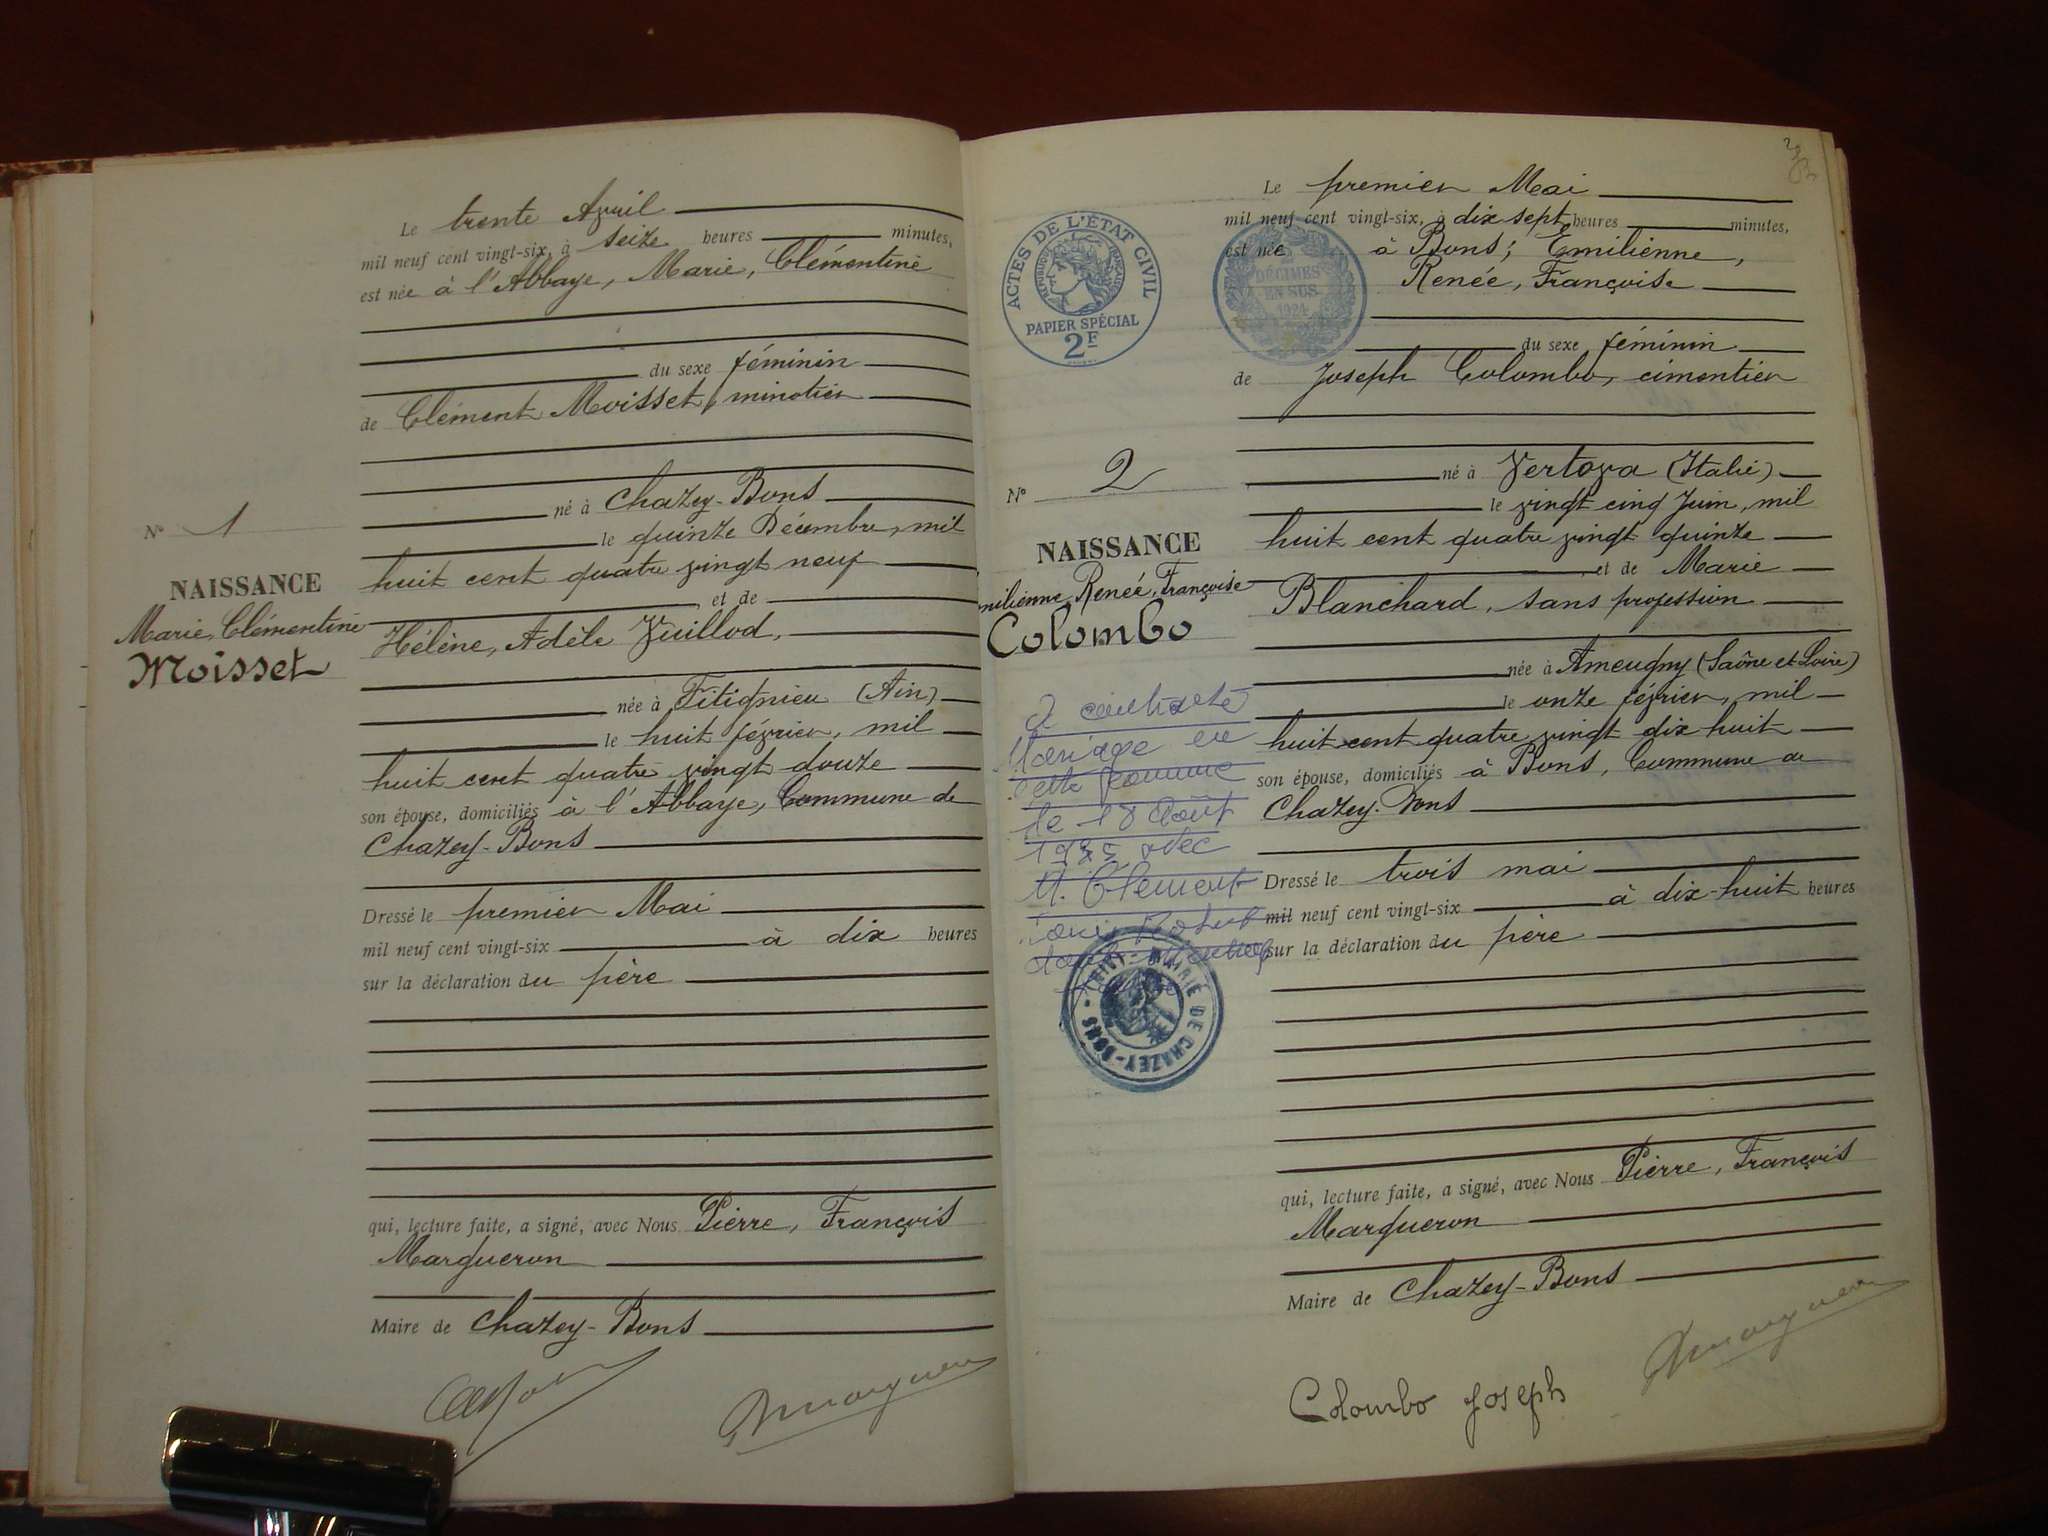 Le trente Avril
mil neuf cent vingt-six, à seize heures minutes,
est née à l'Abbaye, Marie, Clémentine
du sexe féminin
de Clément Moisset, minotier
né à Chazey-Bons
le quinze Décembre, mil
huit cent quatre vingt neuf
et de
Hélène, Adèle Vuillod,
née à Fitignieu (Ain)
le huit février, mil
huit cent quatre vingt douze
son épouse, domiciliés à l'Abbaye, Commune de
Chazey-Bons
Dressé le premier Mai
mil neuf cent vingt-six à dix heures
sur la déclaration du père
qui, lecture faite, a signé, avec Nous Pierre, François
Margueron
Maire de Chazey-Bons
N° 1
NAISSANCE
Marie, Clémentine
Moisset
Margueron
ACTES DE L'ÉTAT CIVIL
PAPIER SPÉCIAL
2F
DÉCIMES
EN SUS
1924
Le premier Mai
mil neuf cent vingt-six, à dix sept heures minutes,
est née à Bons; Emilienne,
Renée, Françoise
du sexe féminin
de Joseph Colombo, cimentier
né à Vertova (Italie)
le vingt cinq Juin, mil
huit cent quatre vingt quinze
et de Marie
Blanchard, sans profession
née à Ameugny (Saône et Loire)
le onze février, mil
huit cent quatre vingt dix huit
son épouse, domiciliés à Bons, Commune de
Chazey-Bons
Dressé le trois mai
mil neuf cent vingt-six à dix-huit heures
sur la déclaration du père
qui, lecture faite, a signé, avec Nous Pierre, François
Margueron
Maire de Chazey-Bons
N° 2
NAISSANCE
Renée, Françoise
Colombo
a contracté
Mariage en
cette commune
le 18 Août
avec
M. Clément
MAIRIE DE CHAZEY-BONS
Colombo Joseph
Margueron